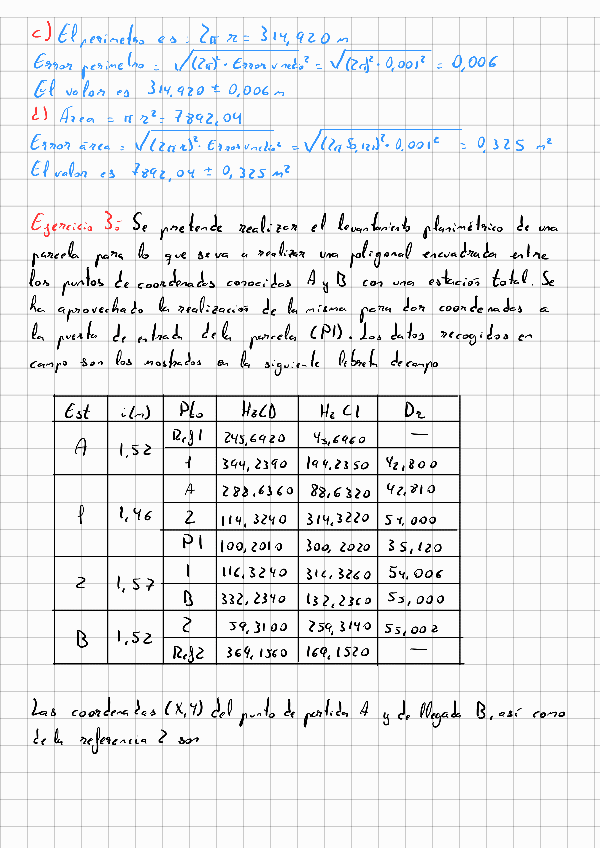 c) El perímetro es: 2π r = 314,920 m
Error perímetro = √(2π)²· Error radio² = √(2π)²· 0,001² = 0,006
El valor es 314,920 ± 0,006 m
d) Área = π r² = 7892,04
Error área = √(2πr)²· Error radio² = √(2π 50,121)²· 0,001² = 0,325 m²
El valor es 7892,04 ± 0,325 m²
Ejercicio 3: Se pretende realizar el levantamiento planimétrico de una
parcela para lo que se va a realizar una poligonal encuadrada entre
los puntos de coordenadas conocidas A y B con una estación total. Se
ha aprovechado la realización de la misma para dar coordenadas a
la puerta de entrada de la parcela (P1). Los datos recogidos en
campo son los mostrados en la siguiente libreta de campo
Est i(m) Pto HzCD Hz CI Dr
A 1,52 Ref1 245,6920 45,6960 —
1 394,2390 194,2350 42,800
1 1,46 A 288,6360 88,6320 42,810
2 114,3240 314,3220 54,000
P1 100,2010 300,2020 35,120
2 1,57 1 116,3240 316,3260 54,006
B 332,2340 132,2360 55,000
B 1,52 2 59,3100 259,3140 55,002
Ref2 369,1560 169,1520 —
Las coordenadas (X,Y) del punto de partida A y de llegada B, así como
de la referencia 2 son